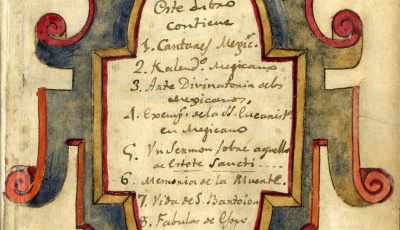 Este Libro
contiene
1. Cantares Mexic.
2. Kalendo. Mexicano
3. Ante Divinatoria de los
mexicanos.
4. Exemp. de la SS. Eucaristia
en Mexicano
5. Vn Sermon sobre aquello
de Estote Sancti....
6. Memoria de la Muerte.
7. Vida de S. Bartolom
8. Fabulas de Esopo